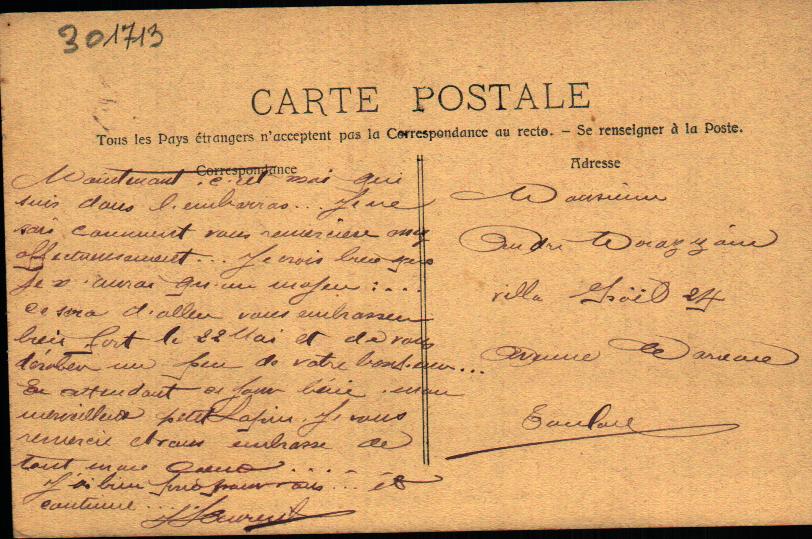 301713
CARTE POSTALE
Tous les Pays étrangers n'acceptent pas la Correspondance au recto. – Se renseigner à la Poste.
Correspondance
Adresse
Maintenant c'est moi qui
suis dans l'embarras... Je ne
sais comment vous remercier
affectueusement... Je crois bien que
je n'aurai qu'un moyen : ...
ce sera d'aller vous embrasser
bien fort le 22 Mai et de vous
dérober un peu de votre bonheur...
En attendant ce jour béni, mon
merveilleux petit Lapin, Je vous
remercie et vous embrasse de
tout mon Coeur ....
J'ai bien prié pour vous ... et
continue ....
Monsieur
André
villa 24
Avenue
Toulon